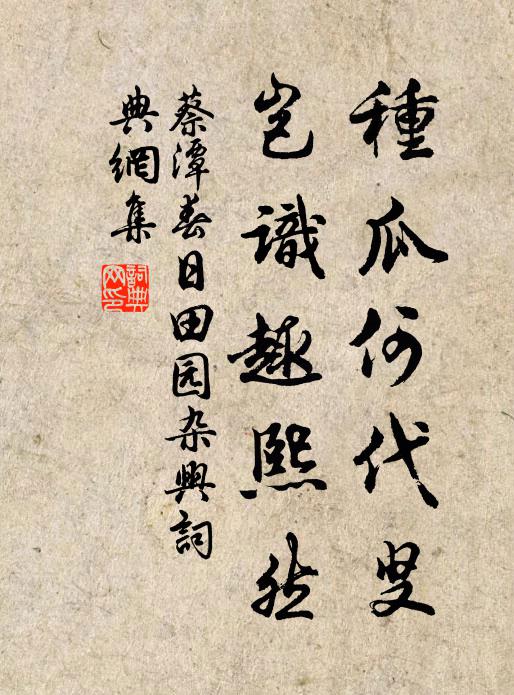 種瓜何代叟
岂識趣熙然
蔡潭春日田园杂興詞
典網集
詞典網印